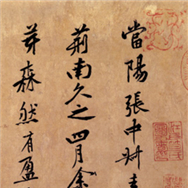 當陽張中叔
荊南久之四月余
芽森然有盈